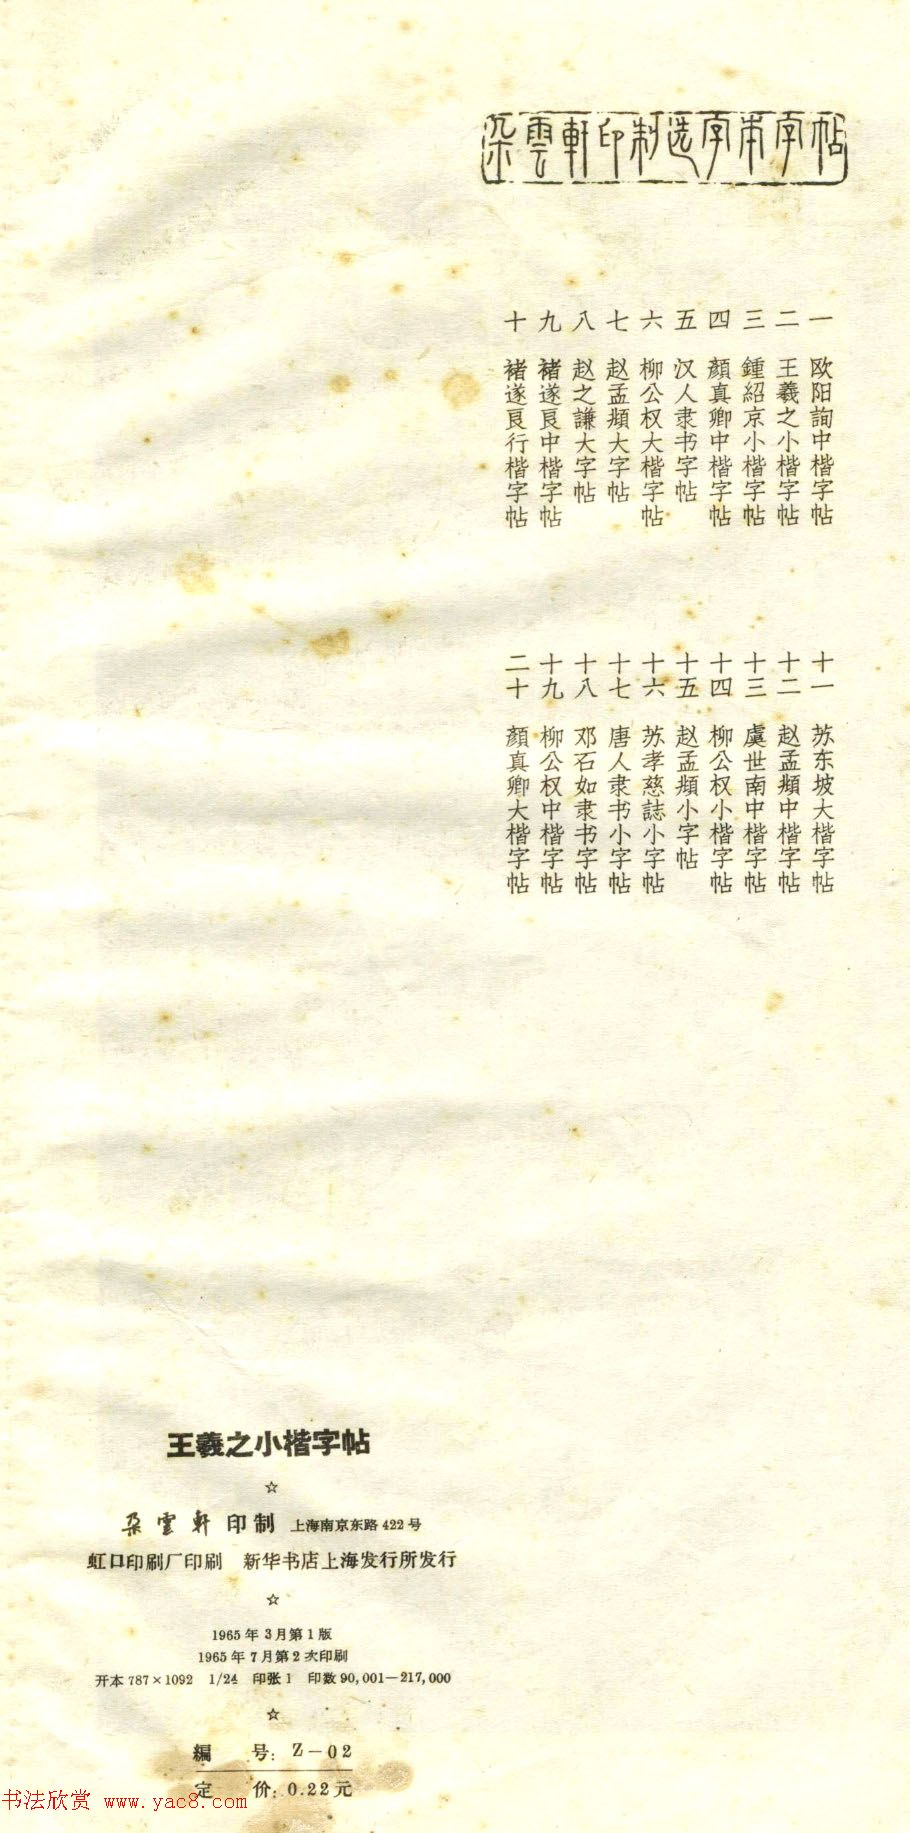 朵雲軒印制选字本字帖
一 欧阳詢中楷字帖
二 王羲之小楷字帖
三 鍾紹京小楷字帖
四 顏真卿中楷字帖
五 汉人隶书字帖
六 柳公权大楷字帖
七 赵孟頫大字帖
八 赵之謙大字帖
九 褚遂良中楷字帖
十 褚遂良行楷字帖
十一 苏东坡大楷字帖
十二 赵孟頫中楷字帖
十三 虞世南中楷字帖
十四 柳公权小楷字帖
十五 赵孟頫小字帖
十六 苏孝慈誌小字帖
十七 唐人隶书小字帖
十八 邓石如隶书字帖
十九 柳公权中楷字帖
二十 顏真卿大楷字帖
王羲之小楷字帖
☆
朵雲軒 印制 上海南京东路 422 号
虹口印刷厂印刷 新华书店上海发行所发行
☆
1965 年 3 月第 1 版
1965 年 7 月第 2 次印刷
开本 787×1092 1/24 印张 1 印数 90,001—217,000
☆
編 号: Z-02
定 价: 0.22 元
书法欣赏 www.yac8.com